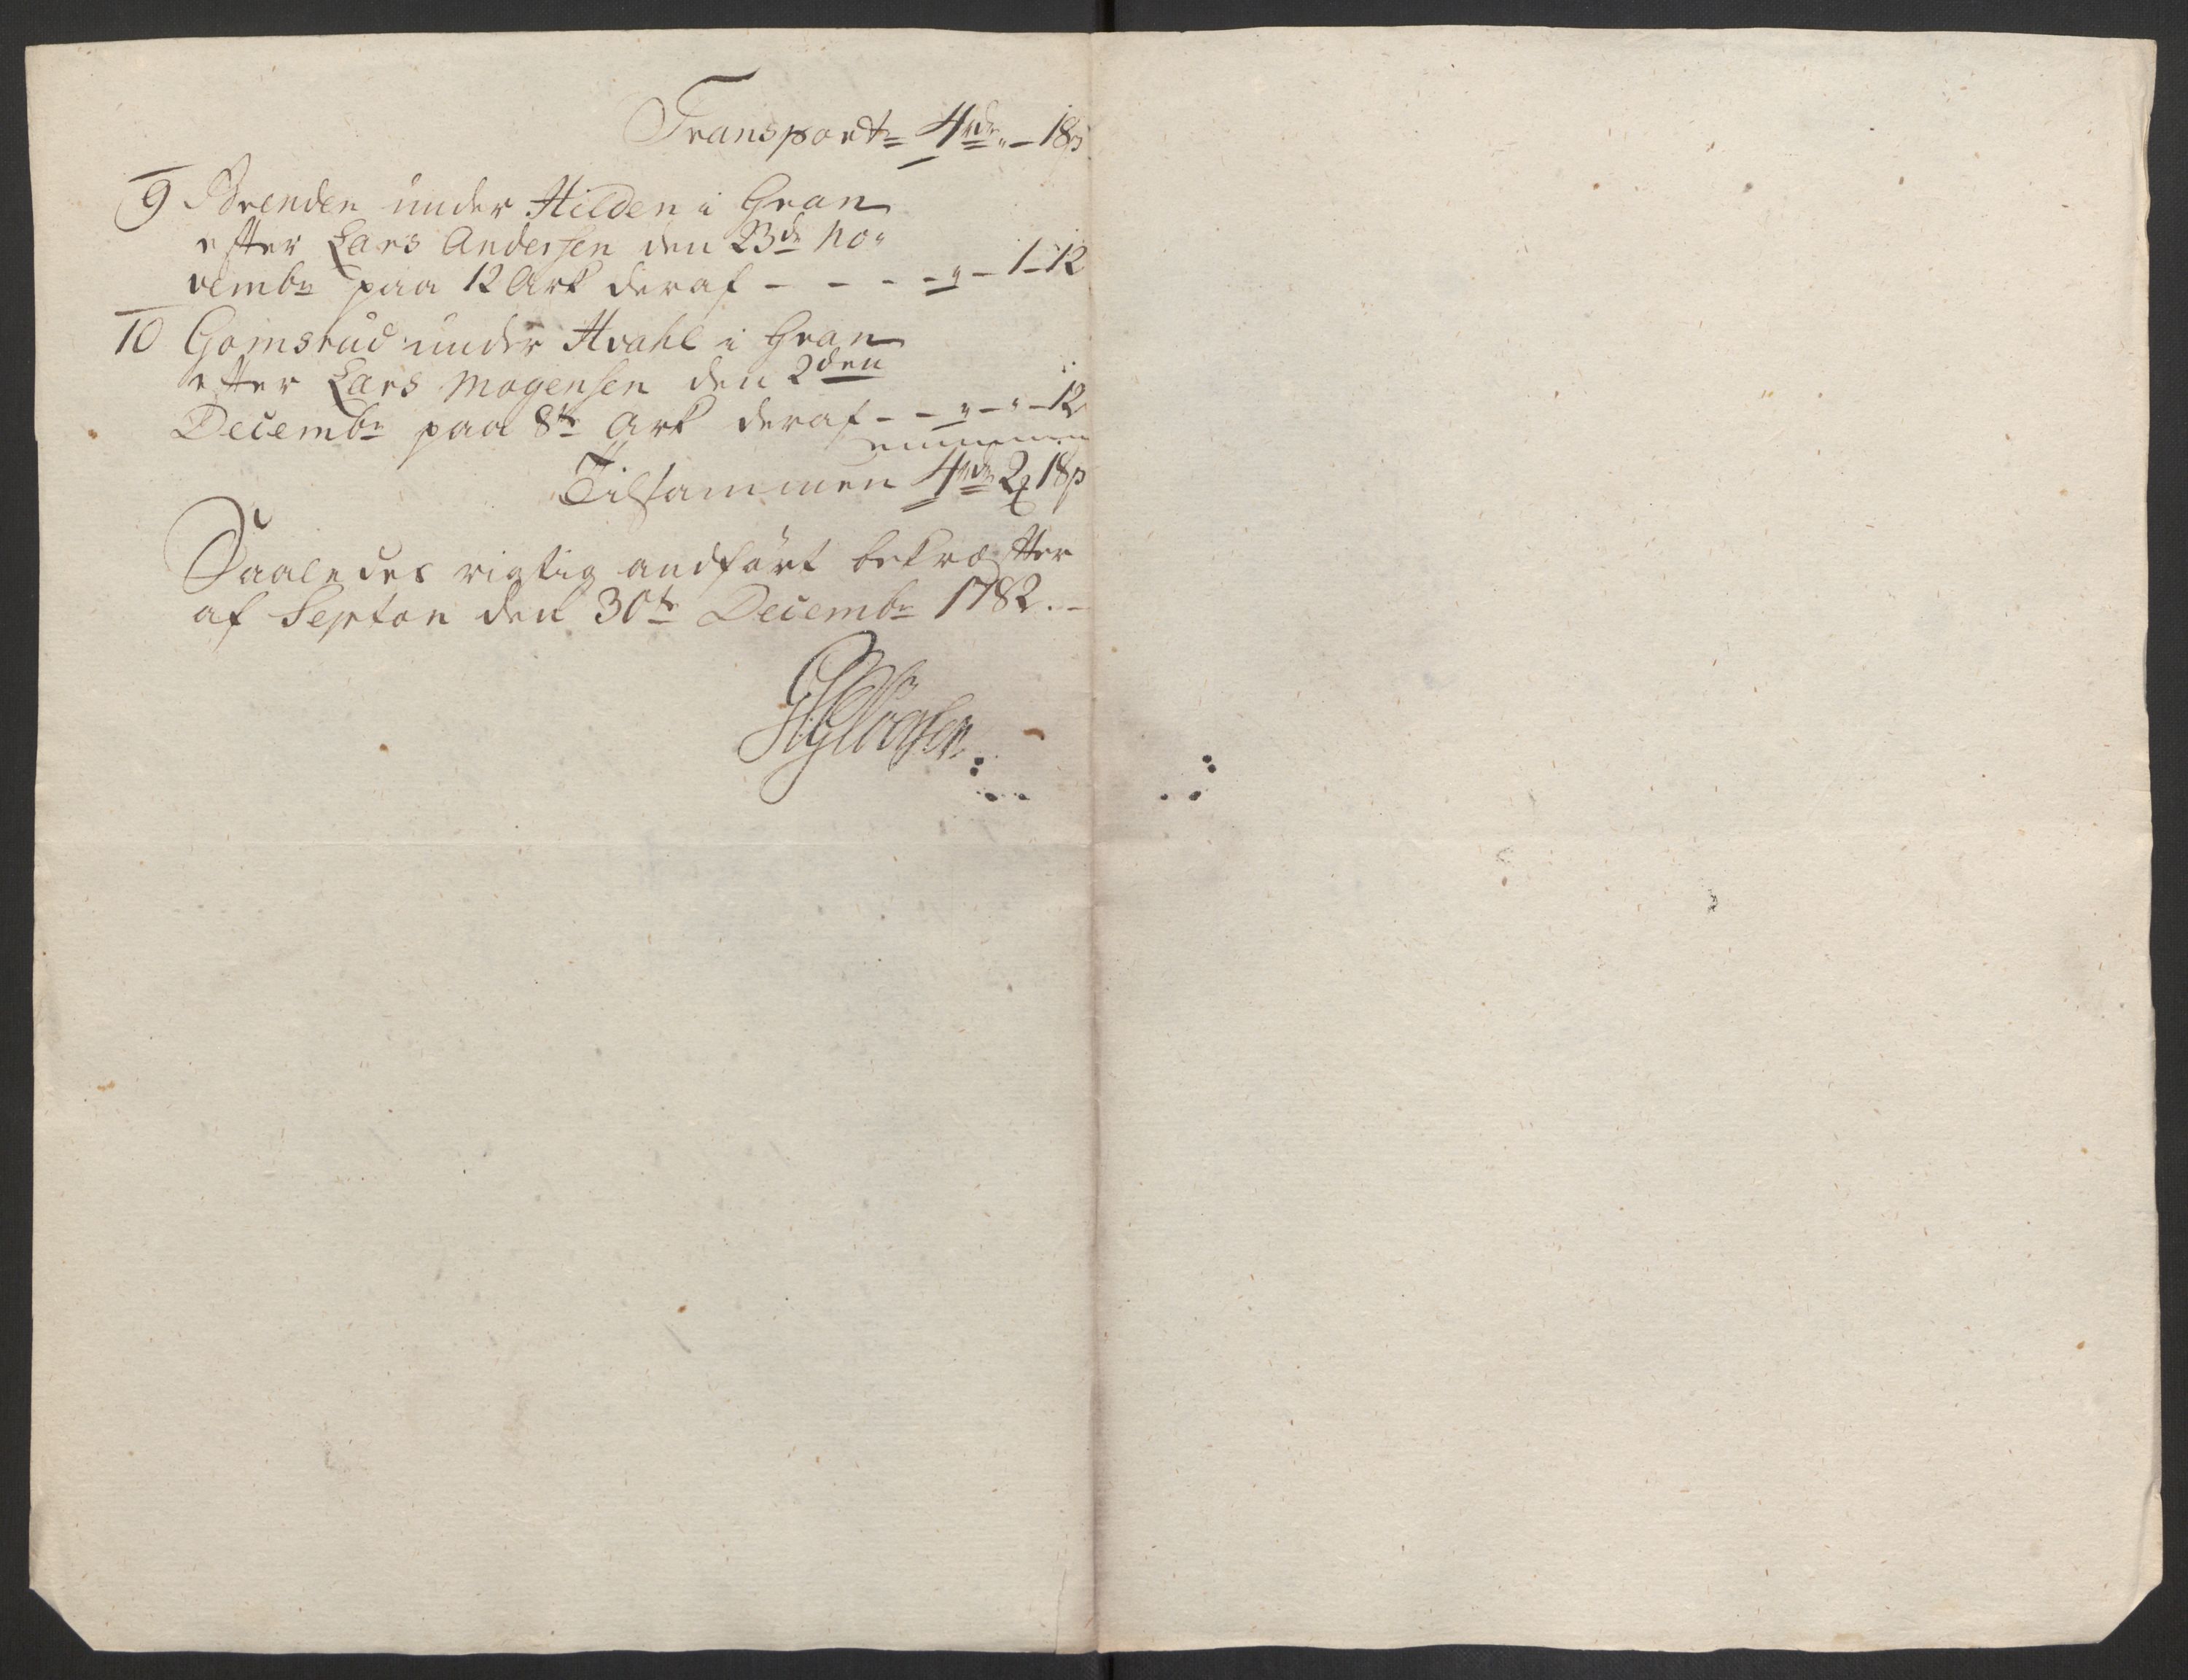 Transport 4rdr „ - 18ß
9 Brenden under Hilden i Gran
efter Lars Andersen den 23de No„
vembr paa 12 Ark deraf - - - - „ - 1 - 12
10 Gomsrud under Hvahl i Gran
efter Lars Mogensen den 2den
Decembr paa 8te Ark deraf - - „ - „ - 12
Tilsammen 4rdr 2 18ß
Saaledes rigtig andført bekræfter
af Septon den 30te Decembr 1782.-